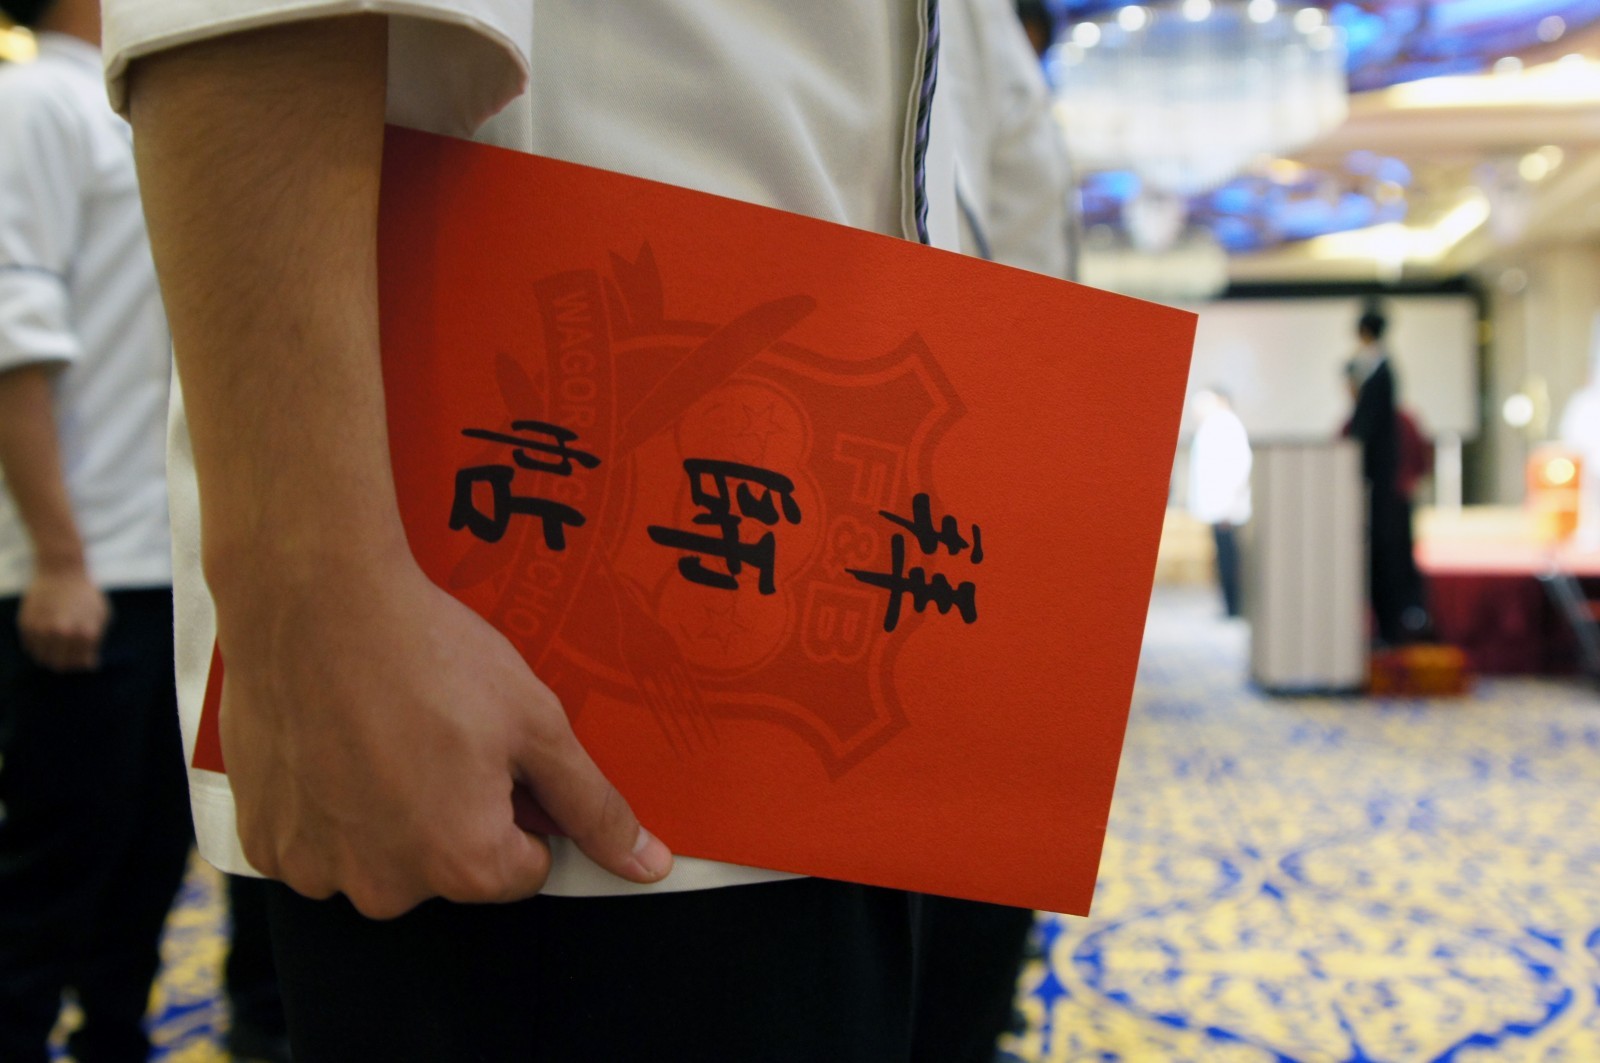 拜師帖
F&B
WAGOR